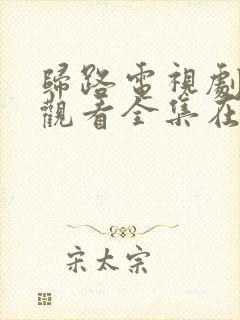 歸路電視劇
觀看全集在
宋太宗